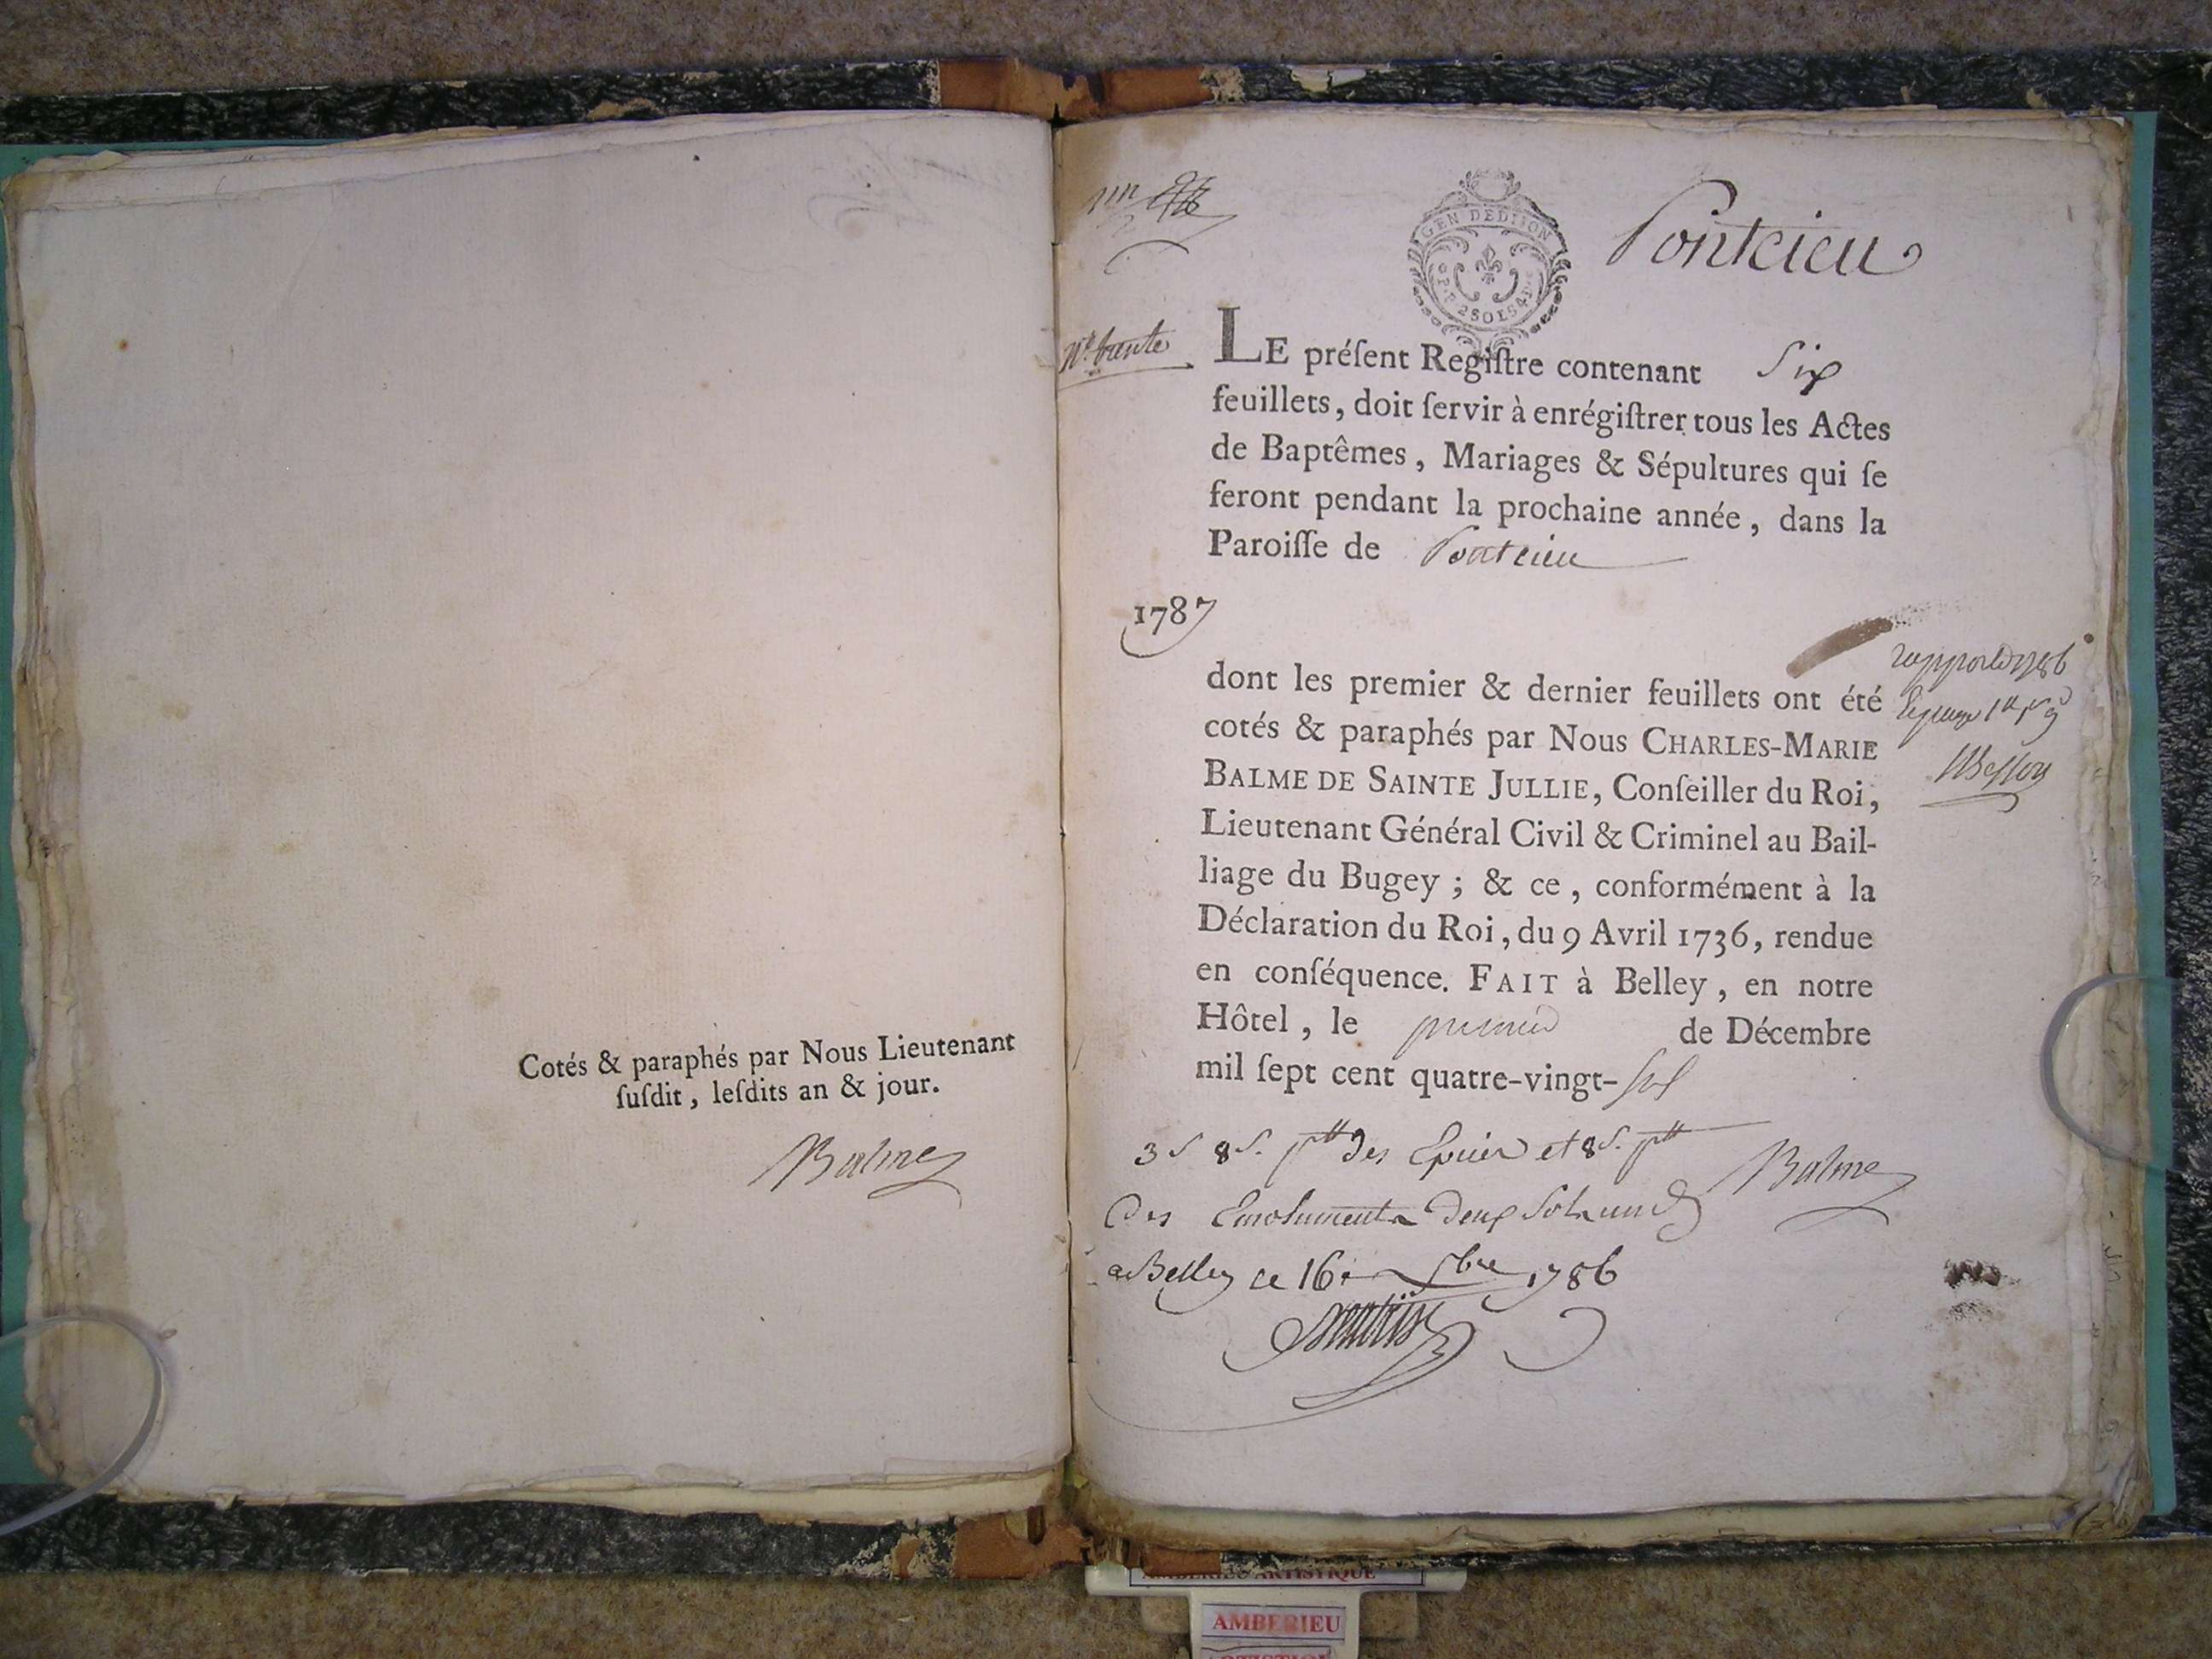 Cotés & paraphés par Nous Lieutenant
ſuſdit, leſdits an & jour.
Balme
GEN DEDIJON
2 SOLS 4 D
Pontcieu
N.º trente
LE préſent Regiſtre contenant Six
feuillets, doit ſervir à enrégiſtrer tous les Actes
de Baptêmes, Mariages & Sépultures qui ſe
feront pendant la prochaine année, dans la
Paroiſſe de Pontcieu
1787
dont les premier & dernier feuillets ont été
cotés & paraphés par Nous CHARLES-MARIE
BALME DE SAINTE JULLIE, Conſeiller du Roi,
Lieutenant Général Civil & Criminel au Bail-
liage du Bugey ; & ce, conformément à la
Déclaration du Roi, du 9 Avril 1736, rendue
en conſéquence. FAIT à Belley, en notre
Hôtel, le premier de Décembre
mil ſept cent quatre-vingt-six
3 s 8 d. des Epices et 8 s.
Des Emoluments deux sols un d
Balme
a Belley ce 16 1786
AMBERIEU ARTISTIQUE
AMBERIEU